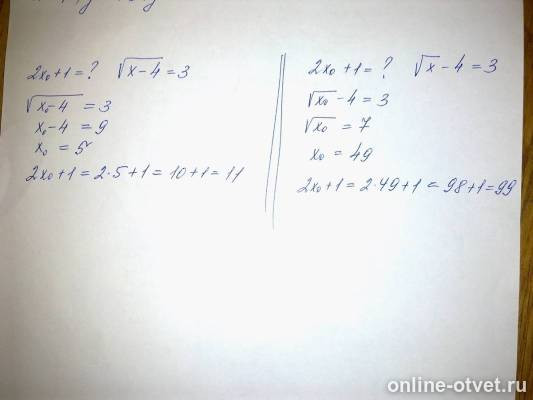 2x₀+1=? √(x-4)=3
√(x₀-4)=3
x₀-4=9
x₀=5
2x₀+1=2·5+1=10+1=11
2x₀+1=? √x-4=3
√x₀-4=3
√x₀=7
x₀=49
2x₀+1=2·49+1=98+1=99
online-otvet.ru